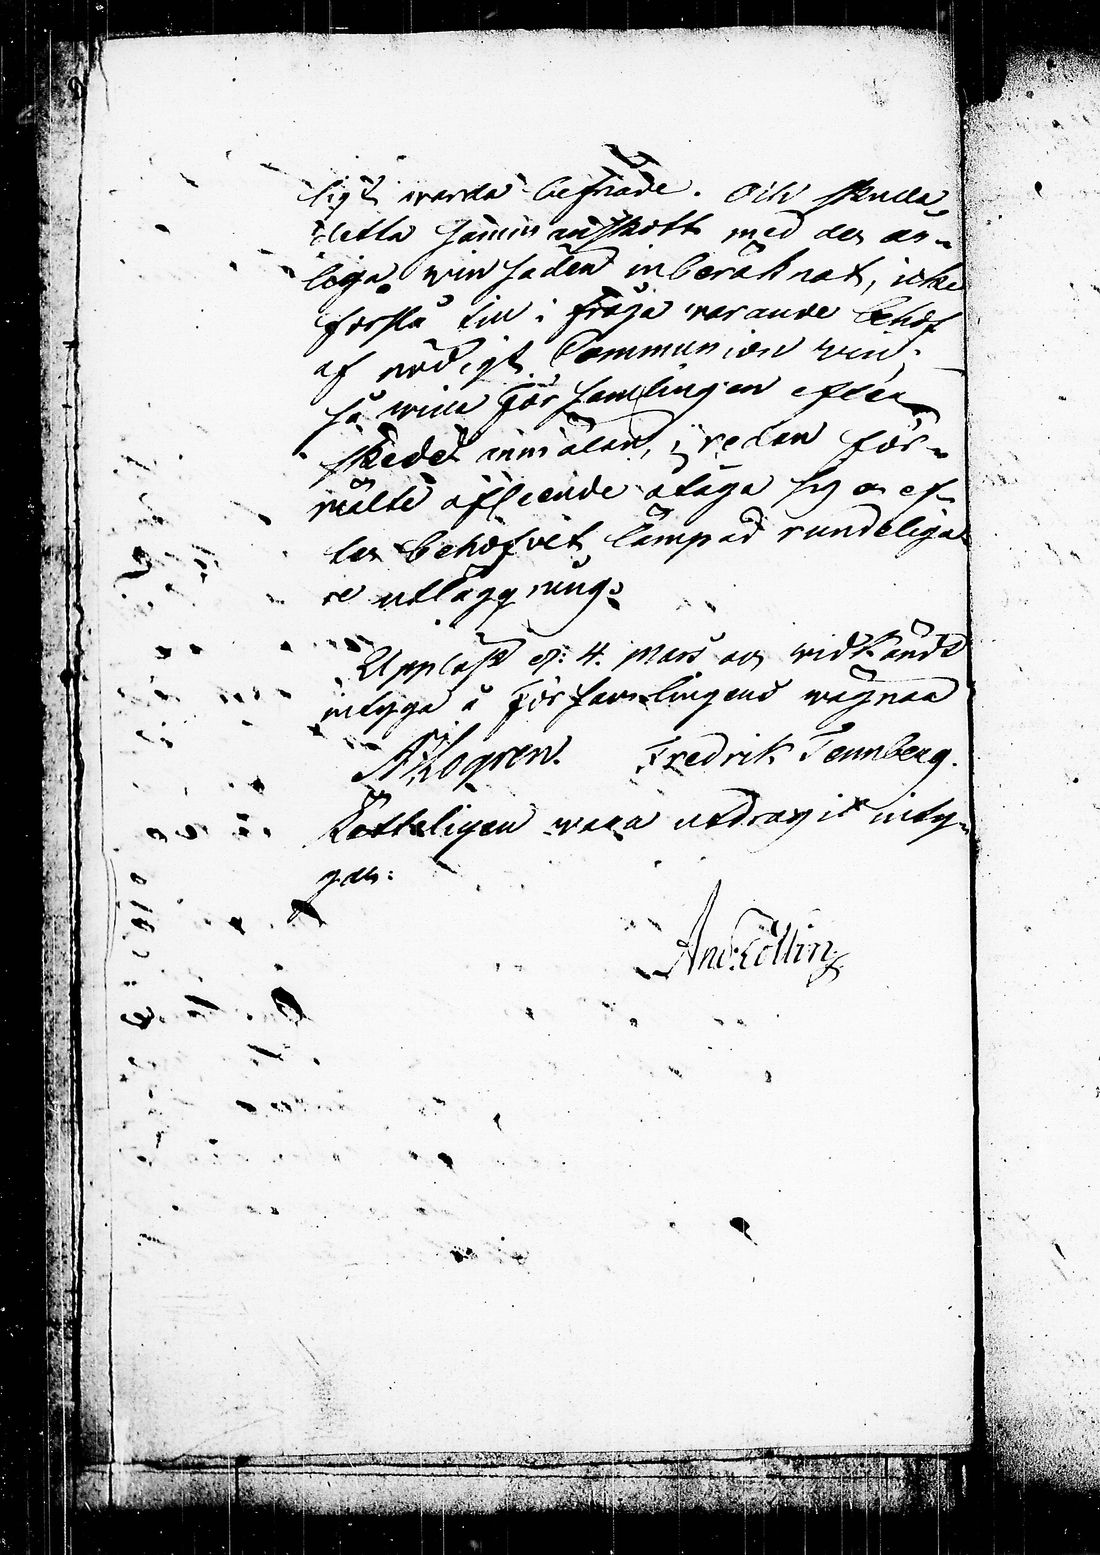 ligt warda befriade. Och skulle
detta sammanskott med den år-
liga winsäden inberäknat, icke
förslå till i fråga warande behof
af nödigt Communion win,
så wille Församlingen efter
skedd anmälan, i redan för-
mälte afseende åtaga sig en ef-
ter behofvet lämpad rundeliga-
re utläggning.
Uppläst d: 4. Mars och widkändt
intyga å Församlingens wägnar
Fredrik Tennberg.
Rätteligen wara utdragit inty-
gar:
And: Collin